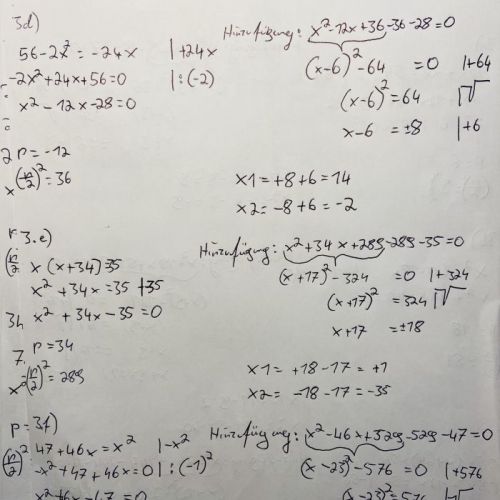 3d)
56-2x² = -24x |+24x
-2x²+24x+56=0 |:(-2)
x² -12x-28=0
p=-12
(p/2)² = 36
Hinzufügung: x²-12x+36-36-28=0
(x-6)²-64 = 0 |+64
(x-6)² = 64 |√
x-6 = ±8 |+6
x1 = +8+6 = 14
x2 = -8+6 = -2
3.e)
x(x+34)=35
x² +34x = 35
x² +34x-35=0
p=34
(p/2)² = 289
Hinzufügung: x²+34x+289-289-35=0
(x+17)²-324 = 0 |+324
(x+17)² = 324 |√
x+17 = ±18
x1 = +18-17 = +1
x2 = -18-17 = -35
3f)
47+46x = x² |-x²
-x²+47+46x=0 |:(-1)
Hinzufügung: x²-46x+529-529-47=0
(x-23)²-576 = 0 |+576